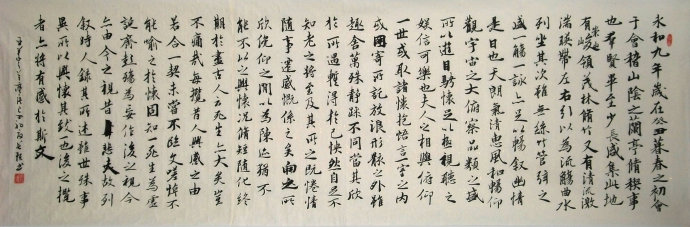 永和九年歲在癸丑暮春之初會
于會稽山陰之蘭亭脩稧事
也群賢畢至少長咸集此地
有崇山峻領茂林脩竹又有清流激
湍暎帶左右引以為流觴曲水
列坐其次雖無絲竹管弦之
盛一觴一詠亦足以暢敘幽情
是日也天朗氣清惠風和暢仰
觀宇宙之大俯察品類之盛
所以遊目騁懷足以極視聽之
娛信可樂也夫人之相與俯仰
一世或取諸懷抱悟言一室之內
或因寄所託放浪形骸之外雖
趣舍萬殊靜躁不同當其欣
於所遇暫得於己怏然自足不
知老之將至及其所之既惓情
隨事遷感慨係之矣向之所
欣俛仰之間以為陳迹猶不
能不以之興懷況脩短隨化終
期於盡古人云死生亦大矣豈
不痛哉每攬昔人興感之由
若合一契未嘗不臨文嗟悼不
能喻之於懷固知一死生為虛
誕齊彭殤為妄作後之視今
亦由今之視昔悲夫故列
敘時人錄其所述雖世殊事
異所以興懷其致一也後之攬
者亦將有感於斯文